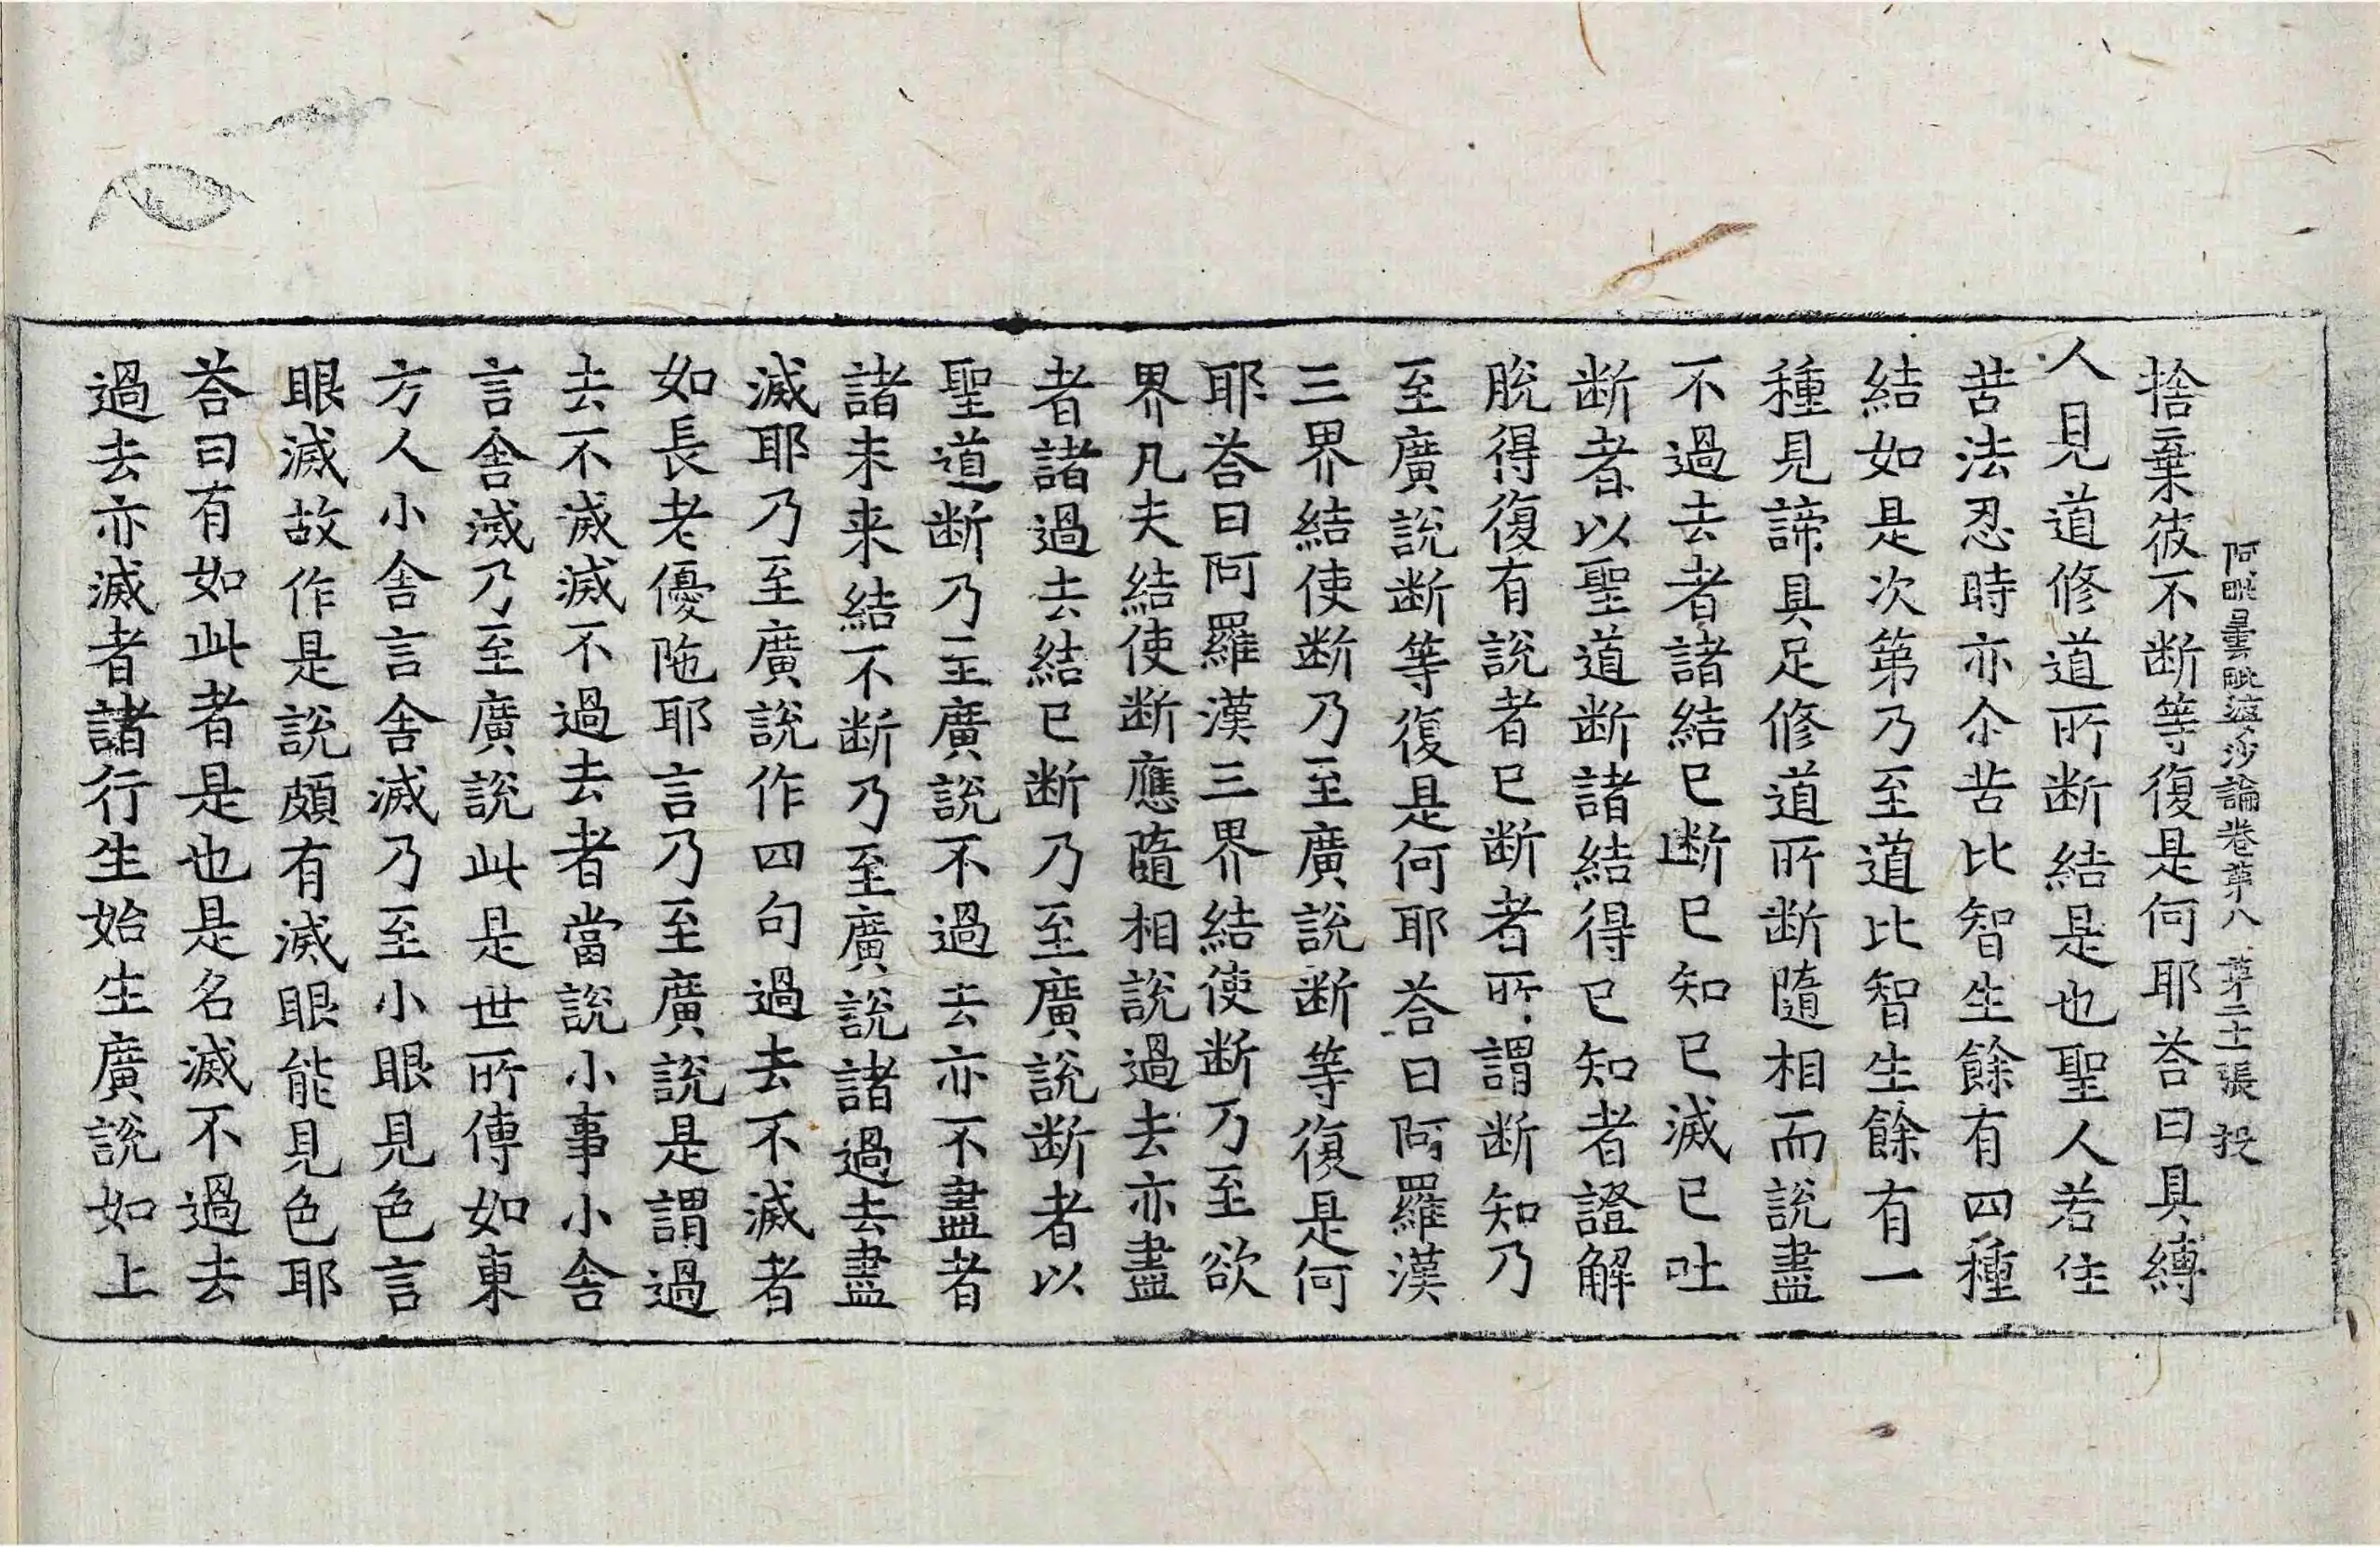 阿毗曇毗婆沙論卷第八 第二十張 投
捨棄彼不断等復是何耶荅曰具縛
人見道修道所断結是也聖人若住
苦法忍時亦尒苦比智生餘有四種
結如是次第乃至道比智生餘有一
種見諦具足修道所断隨相而說盡
不過去者諸結已断已知已滅已吐
断者以聖道断諸結得已知者證解
脫得復有說者已断者所謂断知乃
至廣說断等復是何耶荅曰阿羅漢
三界結使断乃至廣說断等復是何
耶荅曰阿羅漢三界結使断乃至欲
界凡夫結使断應隨相說過去亦盡
者諸過去結已断乃至廣說断者以
聖道断乃至廣說不過去亦不盡者
諸未来結不断乃至廣說諸過去盡
滅耶乃至廣說作四句過去不滅者
如長老優陁耶言乃至廣說是謂過
去不滅滅不過去者當說小事小舍
言舍滅乃至廣說此是世所傳如東
方人小舍言舍滅乃至小眼見色言
眼滅故作是說頗有滅眼能見色耶
荅曰有如此者是也是名滅不過去
過去亦滅者諸行生始生廣說如上